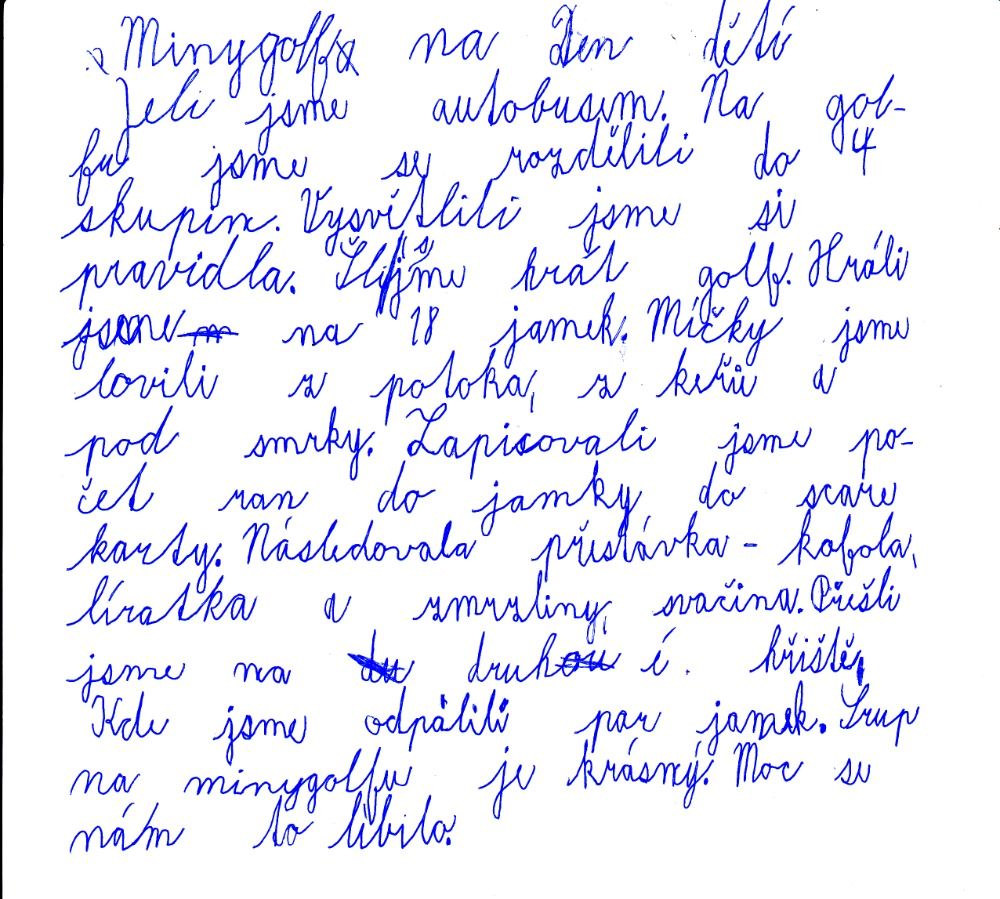 Minygolf na Den dětí
Jeli jsme autobusem. Na gol-
fu jsme se rozdělili do 4
skupin. Vysvětlili jsme si
pravidla. Šli jsme hrát golf. Hráli
jsme na 18 jamek. Míčky jsme
lovili z potoka, z keřů a
pod smrky. Zapisovali jsme po-
čet ran do jamky do scare
karty. Následovala přestávka - kofola,
líratka a zmrzliny, svačina. Přešli
jsme na druh é. hřiště,
Kde jsme odpálili par jamek.
na minygolfu je krásný. Moc se
nám to líbilo.